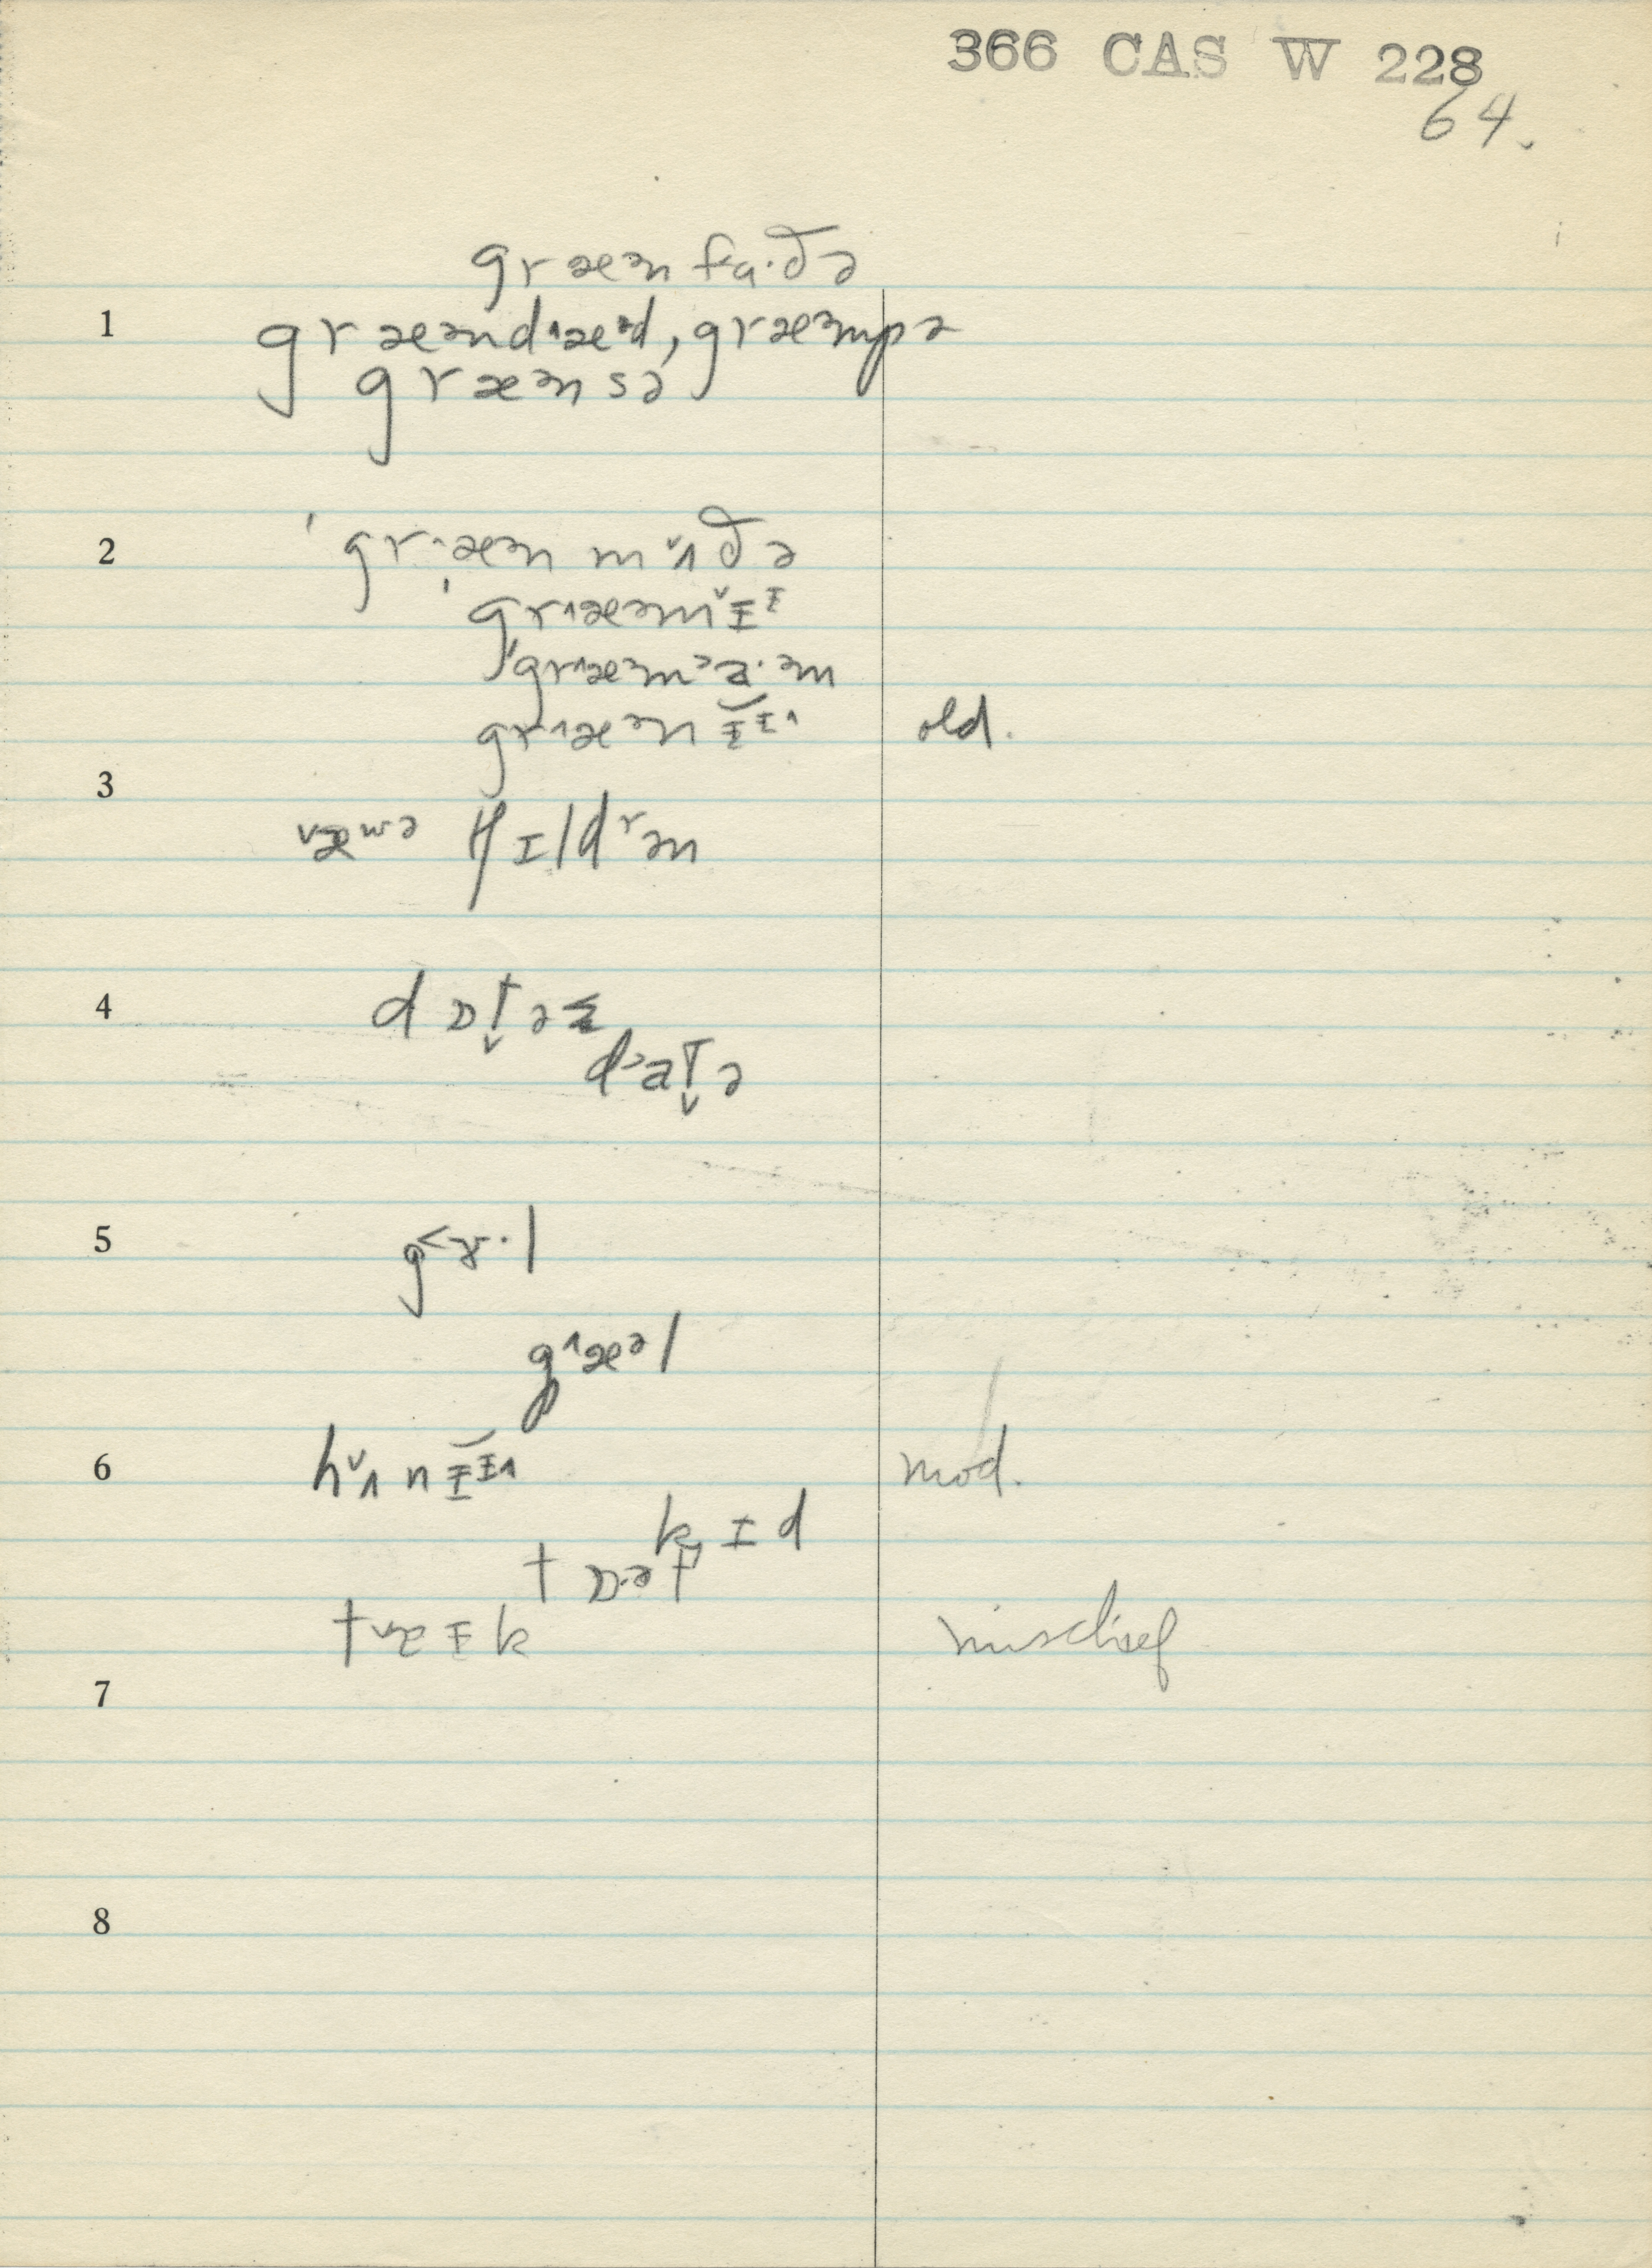 366 CAS W 228
64.
græᵊn fa·ðə
1 græᵊnd˄æᵊd, græᵊmpə
græᵊn sə
2 ˈgr˄æᵊn m˅ʌðə
ˈgr˄æᵊm˅ɪᶦ
ˈgr˄æᵊm˃a·ᵊm
gr˄æᵊn ɪᶦ˄ old.
3
˅æʷə tʃɪldʳən
4 dɒt̬əʳ
d˃at̬ə
5 g˂ɤ·l
g˄æᵊl
6 h˅ʌnɪᶦ˄ mod.
kɪd
tɒ·ᵊt
t˅æɪk mischief
7
8